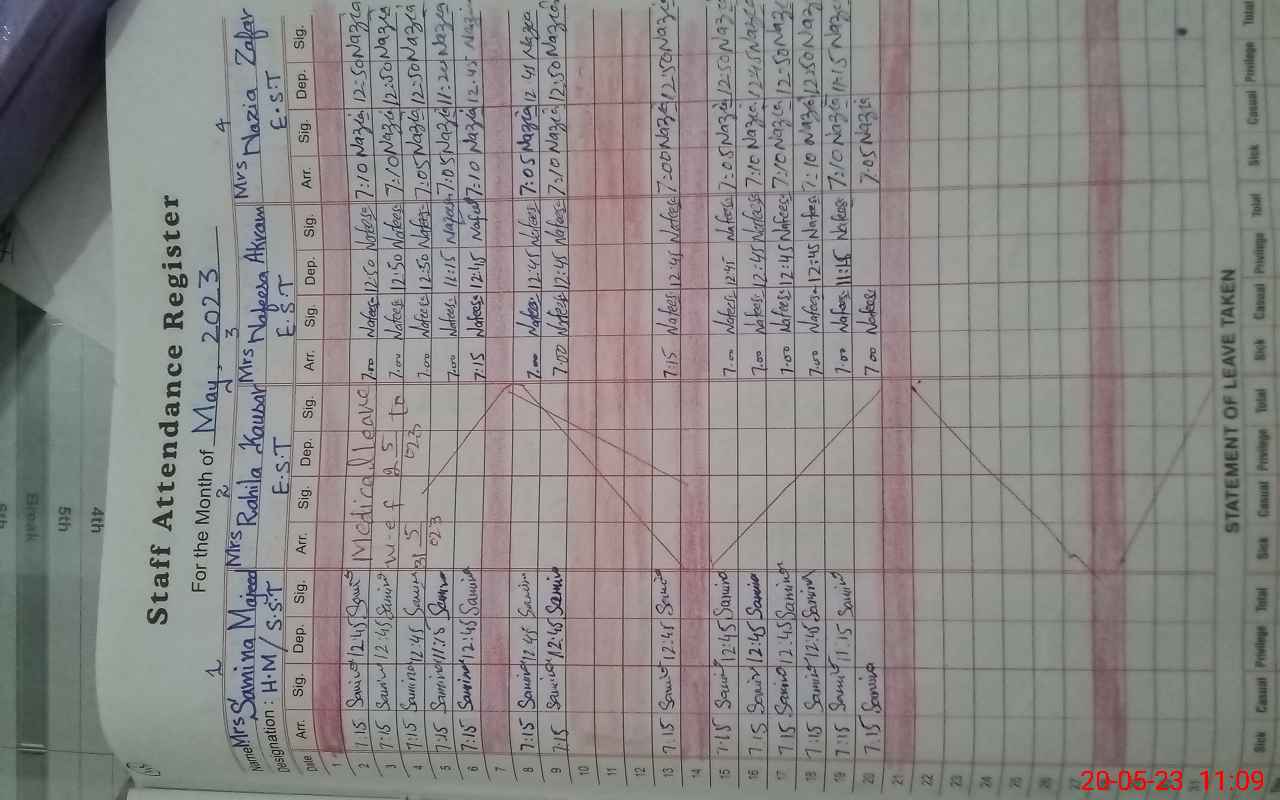 Staff Attendance Register
For the Month of May, 2023
1 2 3 4
Name Mrs Samina Majeed Mrs Rahila Kausar Mrs Nafeesa Akram Mrs Nazia Zafar
Designation : H.M / S.S.T E.S.T E.S.T E.S.T
Date Arr. Sig. Dep. Sig. Arr. Sig. Dep. Sig. Arr. Sig. Dep. Sig. Arr. Sig. Dep. Sig.
1
2 7:15 Samina 12:45 Samina Medical leave 7.00 Nafees 12:50 Nafees 7:10 Nazia 12:50 Nazia
3 7:15 Samina 12:45 Samina w.e.f 7.00 Nafees 12:50 Nafees 7:10 Nazia 12:50 Nazia
4 7:15 Samina 12:45 Samina 5 to 7.00 Nafees 12:50 Nafees 7:05 Nazia 12:50 Nazia
5 7:15 Samina 11:15 Samina 023 023 7.00 Nafees 11:15 Nafees 7:05 Nazia 11:20 Nazia
6 7:15 Samina 12:45 Samina 7:15 Nafees 12:45 Nafees 7:10 Nazia 12:45 Nazia
7
8 7:15 Samina 12:45 Samina 7.00 Nafees 12:45 Nafees 7:05 Nazia 12 45 Nazia
9 7:15 Samina 12:45 Samina 7:00 Nafees 12:45 Nafees 7:10 Nazia 12:50 Nazia
10
11
12
13 7:15 Samina 12:45 Samina 7:15 Nafees 12:45 Nafees 7:00 Nazia 12:50 Nazia
14
15 7:15 Samina 12:45 Samina 7.00 Nafees 12:45 Nafees 7:05 Nazia 12:50 Nazia
16 7:15 Samina 12:45 Samina 7.00 Nafees 12:45 Nafees 7:10 Nazia 12:45 Nazia
17 7:15 Samina 12:45 Samina 7.00 Nafees 12:45 Nafees 7:10 Nazia 12:50 Nazia
18 7:15 Samina 12:45 Samina 7.00 Nafees 12:45 Nafees 7:10 Nazia 12:50 Nazia
19 7:15 Samina 11.15 Samina 7.00 Nafees 11:15 Nafees 7:10 Nazia 11:15 Nazia
20 7.15 Samina 7.00 Nafees 7:05 Nazia
21
22
23
24
25
26
27
28
31
STATEMENT OF LEAVE TAKEN
Sick Casual Privilege Total Sick Casual Privilege Total Sick Casual Privilege Total Sick Casual Privilege Total
4th
5th
Break
6th
20-05-23 11:09